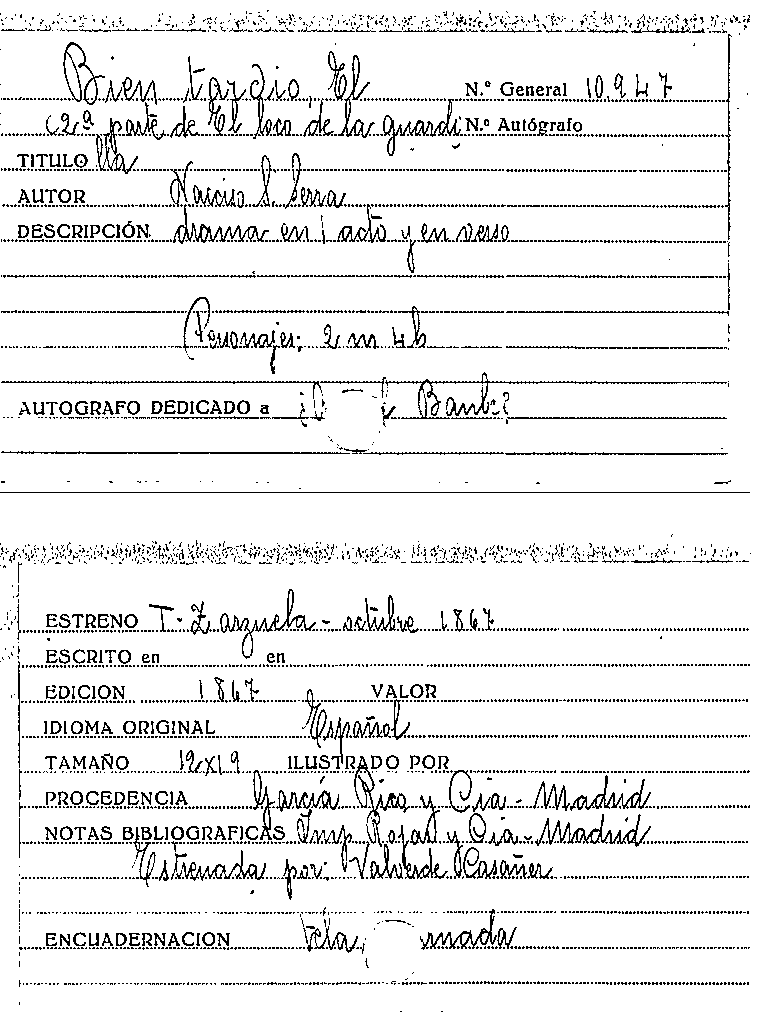 Bien tardio, El N.º General 10.947
(2ª parte de El loco de la guardi N.º Autógrafo
TITULO lla
AUTOR Narciso S. Serra
DESCRIPCIÓN drama en 1 acto y en verso
Personajes: 2 m 4h
AUTOGRAFO DEDICADO a
ESTRENO T. Zarzuela - octubre 1867
ESCRITO en en
EDICION 1867 VALOR
IDIOMA ORIGINAL Español
TAMAÑO 12x19 ILUSTRADO POR
PROCEDENCIA García Rico y Cia - Madrid
NOTAS BIBLIOGRAFICAS Imp. Rojas y Cia - Madrid
Estrenada por: Valverde Casañer
ENCUADERNACION tela,